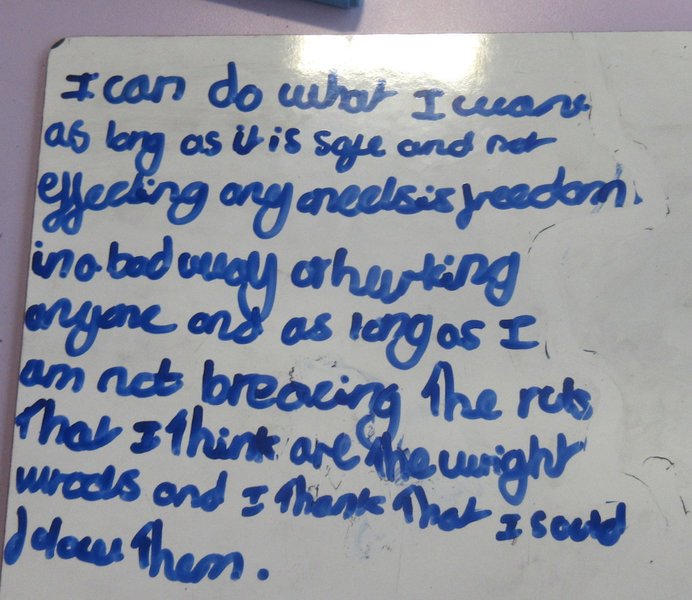 I can do what I want
as long as it is safe and not
effecting any oneelsis freedom
in a bad way or hurking
anyone and as long as I
am not breacing the ruls
That I think are the wright
wrods and I thank that I sould
folow them.